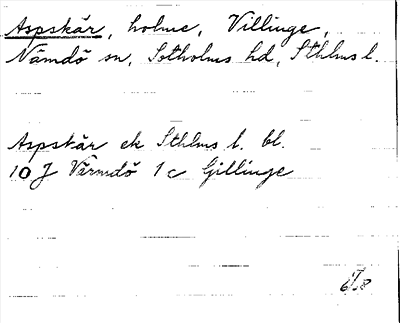 Aspskär, holme, Villinge,
Nämdö sn, Sotholms hd, Sthlms l.
Aspskär ek Sthlms l. bl.
10 J Värmdö 1c Gillinge